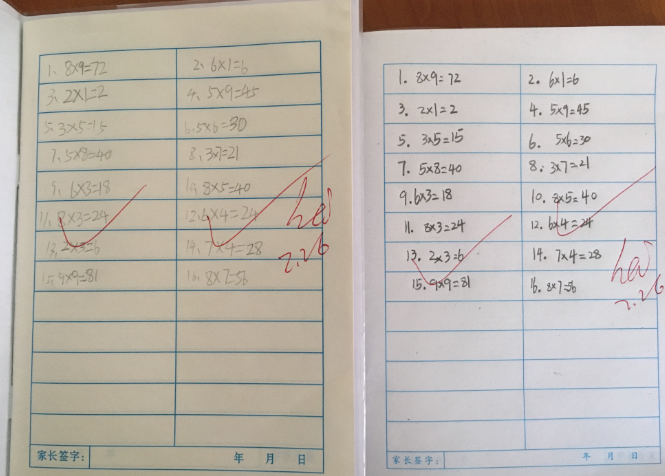 1、8×9=72 2、6×1=6
3、2×1=2 4、5×9=45
5、3×5=15 6、5×6=30
7、5×8=40 8、3×7=21
9、6×3=18 10、8×5=40
11、8×3=24 12、6×4=24
13、2×3=6 14、7×4=28
15、9×9=81 16、8×7=56
2.26
家长签字: 年 月 日
1. 8×9=72 2. 6×1=6
3. 2×1=2 4. 5×9=45
5. 3×5=15 6. 5×6=30
7. 5×8=40 8. 3×7=21
9. 6×3=18 10. 8×5=40
11. 8×3=24 12. 6×4=24
13. 2×3=6 14. 7×4=28
15. 9×9=81 16. 8×7=56
2.26
家长签字: 年 月 日